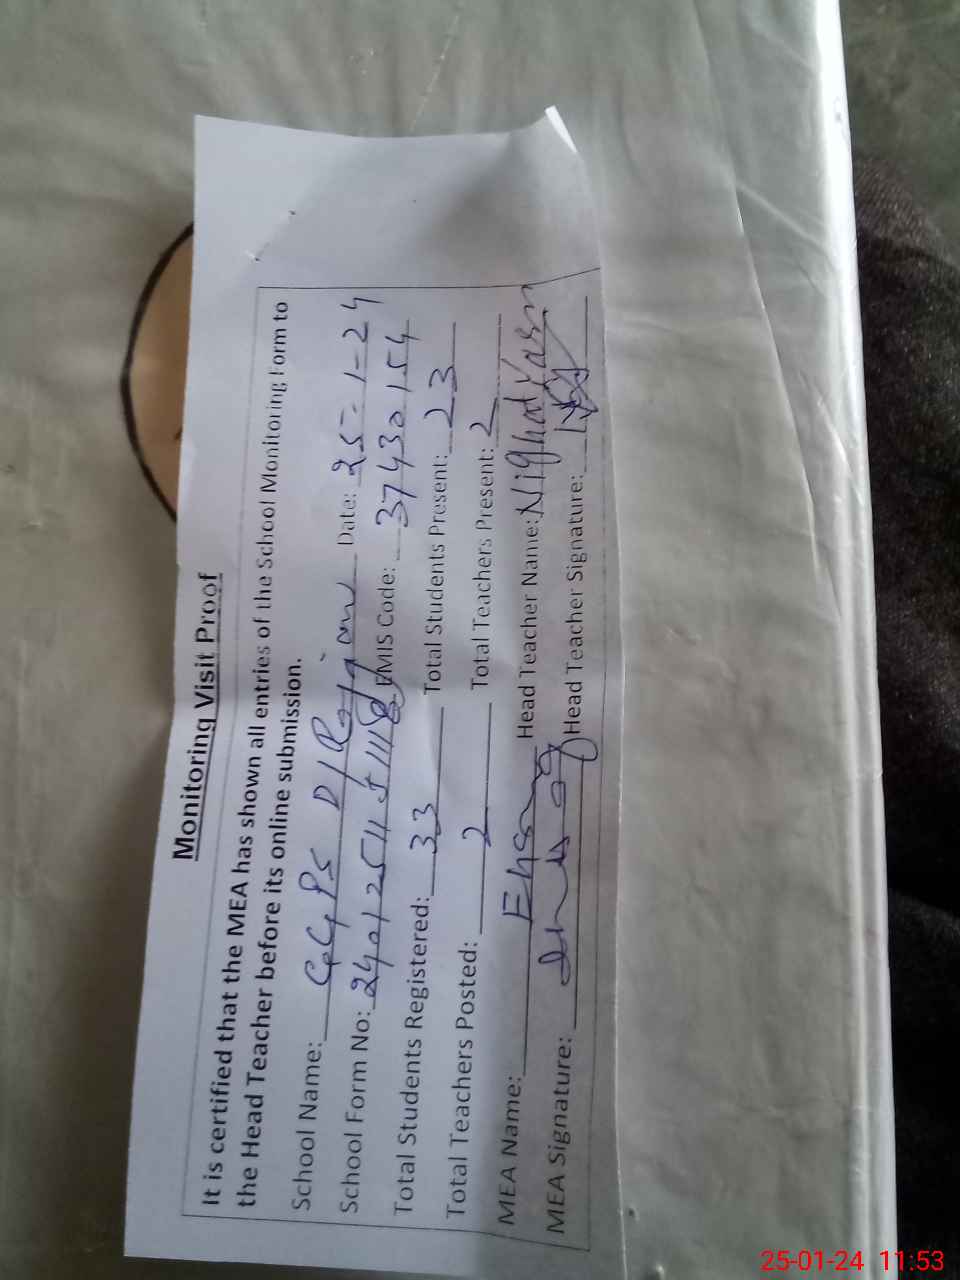 Monitoring Visit Proof
It is certified that the MEA has shown all entries of the School Monitoring Form to
the Head Teacher before its online submission.
School Name: GGPS D/Rajjan Date: 25-1-24
School Form No: EMIS Code: 37430154
Total Students Registered: 33 Total Students Present: 23
Total Teachers Posted: 2 Total Teachers Present: 2
MEA Name: Head Teacher Name: Nighat
MEA Signature: Head Teacher Signature:
25-01-24 11:53